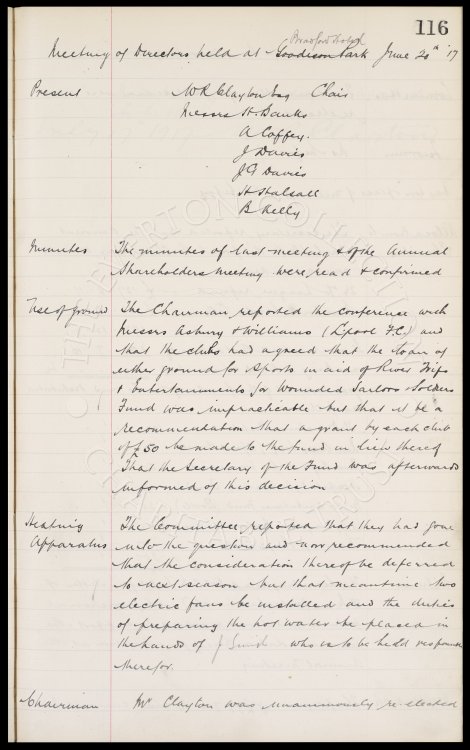 116
Bradford Hotel
Meeting of Directors held at Goodison Park June 20th '17
Present W R Clayton Esq Chair
Messrs H. Banks
A Coffey.
J Davies
H Halsall
B Kelly
Minutes The minutes of last meeting & of the Annual
Shareholders meeting were read & confirmed
Use of Ground The Chairman reported the conference with
Messrs Asbury & Williams (L'pool F.C.) and
that the clubs had agreed that the loan of
either ground for Sports in aid of River Trips
& Entertainments for Wounded Sailors & Soldiers
Fund was impracticable but that it be a
recommendation that a grant by each club
of £50 be made to the fund in lieu thereof
That the Secretary of the Fund was afterwards
informed of this decision
Heating The Committee reported that they had gone
Apparatus into the question and now recommended
that the consideration thereof be deferred
to next season but that meantime two
electric fans be installed and the duties
of preparing the hot water be placed in
the hands of J Smith who is to be held responsible
therefor.
Chairman Mr Clayton was unanimously re-elected